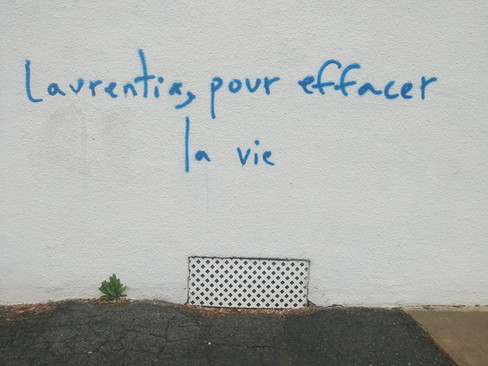 Laurentia, pour effacer
la vie